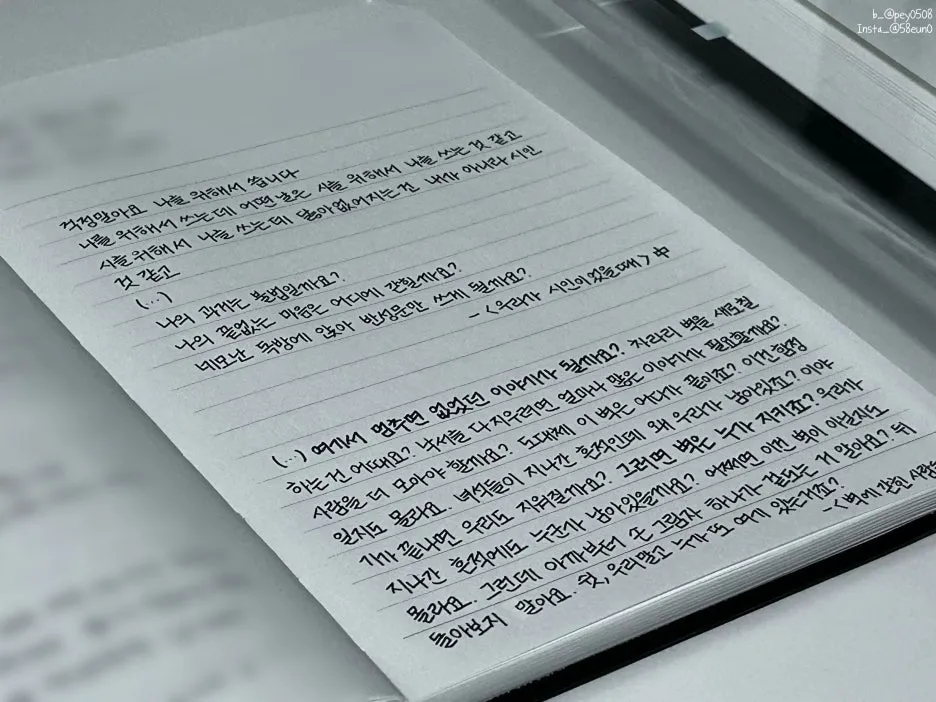 b_@pey0508
Insta_@58eun0
걱정말아요 나를 위해서 씁니다
나를 위해서 쓰는데 어떤 날은 시를 위해서 나를 쓰는 것 같고
시를 위해서 나를 쓰는데 닳아 없어지는 건 내가 아니라 시인
것 같고
(…)
나의 과거는 불법일까요?
나의 끝없는 마음은 어디에 갇힐까요?
네모난 독방에 앉아 반성문만 쓰게 될까요?
-<우리가 시인이 있을 때> 中
(…) 여기서 멈추면 없었던 이야기가 될까요? 차라리 벽을 새로 칠
하는 건 어때요? 낙서를 다 지우려면 얼마나 많은 이야기가 필요할까요?
사람을 더 모아야 할까요? 도대체 이 벽은 어디가 끝이죠? 이건 함정
일지도 몰라요. 녀석들이 지나간 흔적인데 왜 우리가 남아있죠? 이야
기가 끝나면 우리도 지워질까요? 그러면 벽은 누가 지키죠? 우리가
지나간 흔적에도 누군가 남아있을까요? 어쩌면 이건 벽이 아닐지도
몰라요. 그런데 아까부터 손 그림자 하나가 겉도는 거 알아요? 뒤
돌아보지 말아요. 쉿, 우리말고 누가 또 여기 있는거죠?
-<벽에 갇힌 사람들